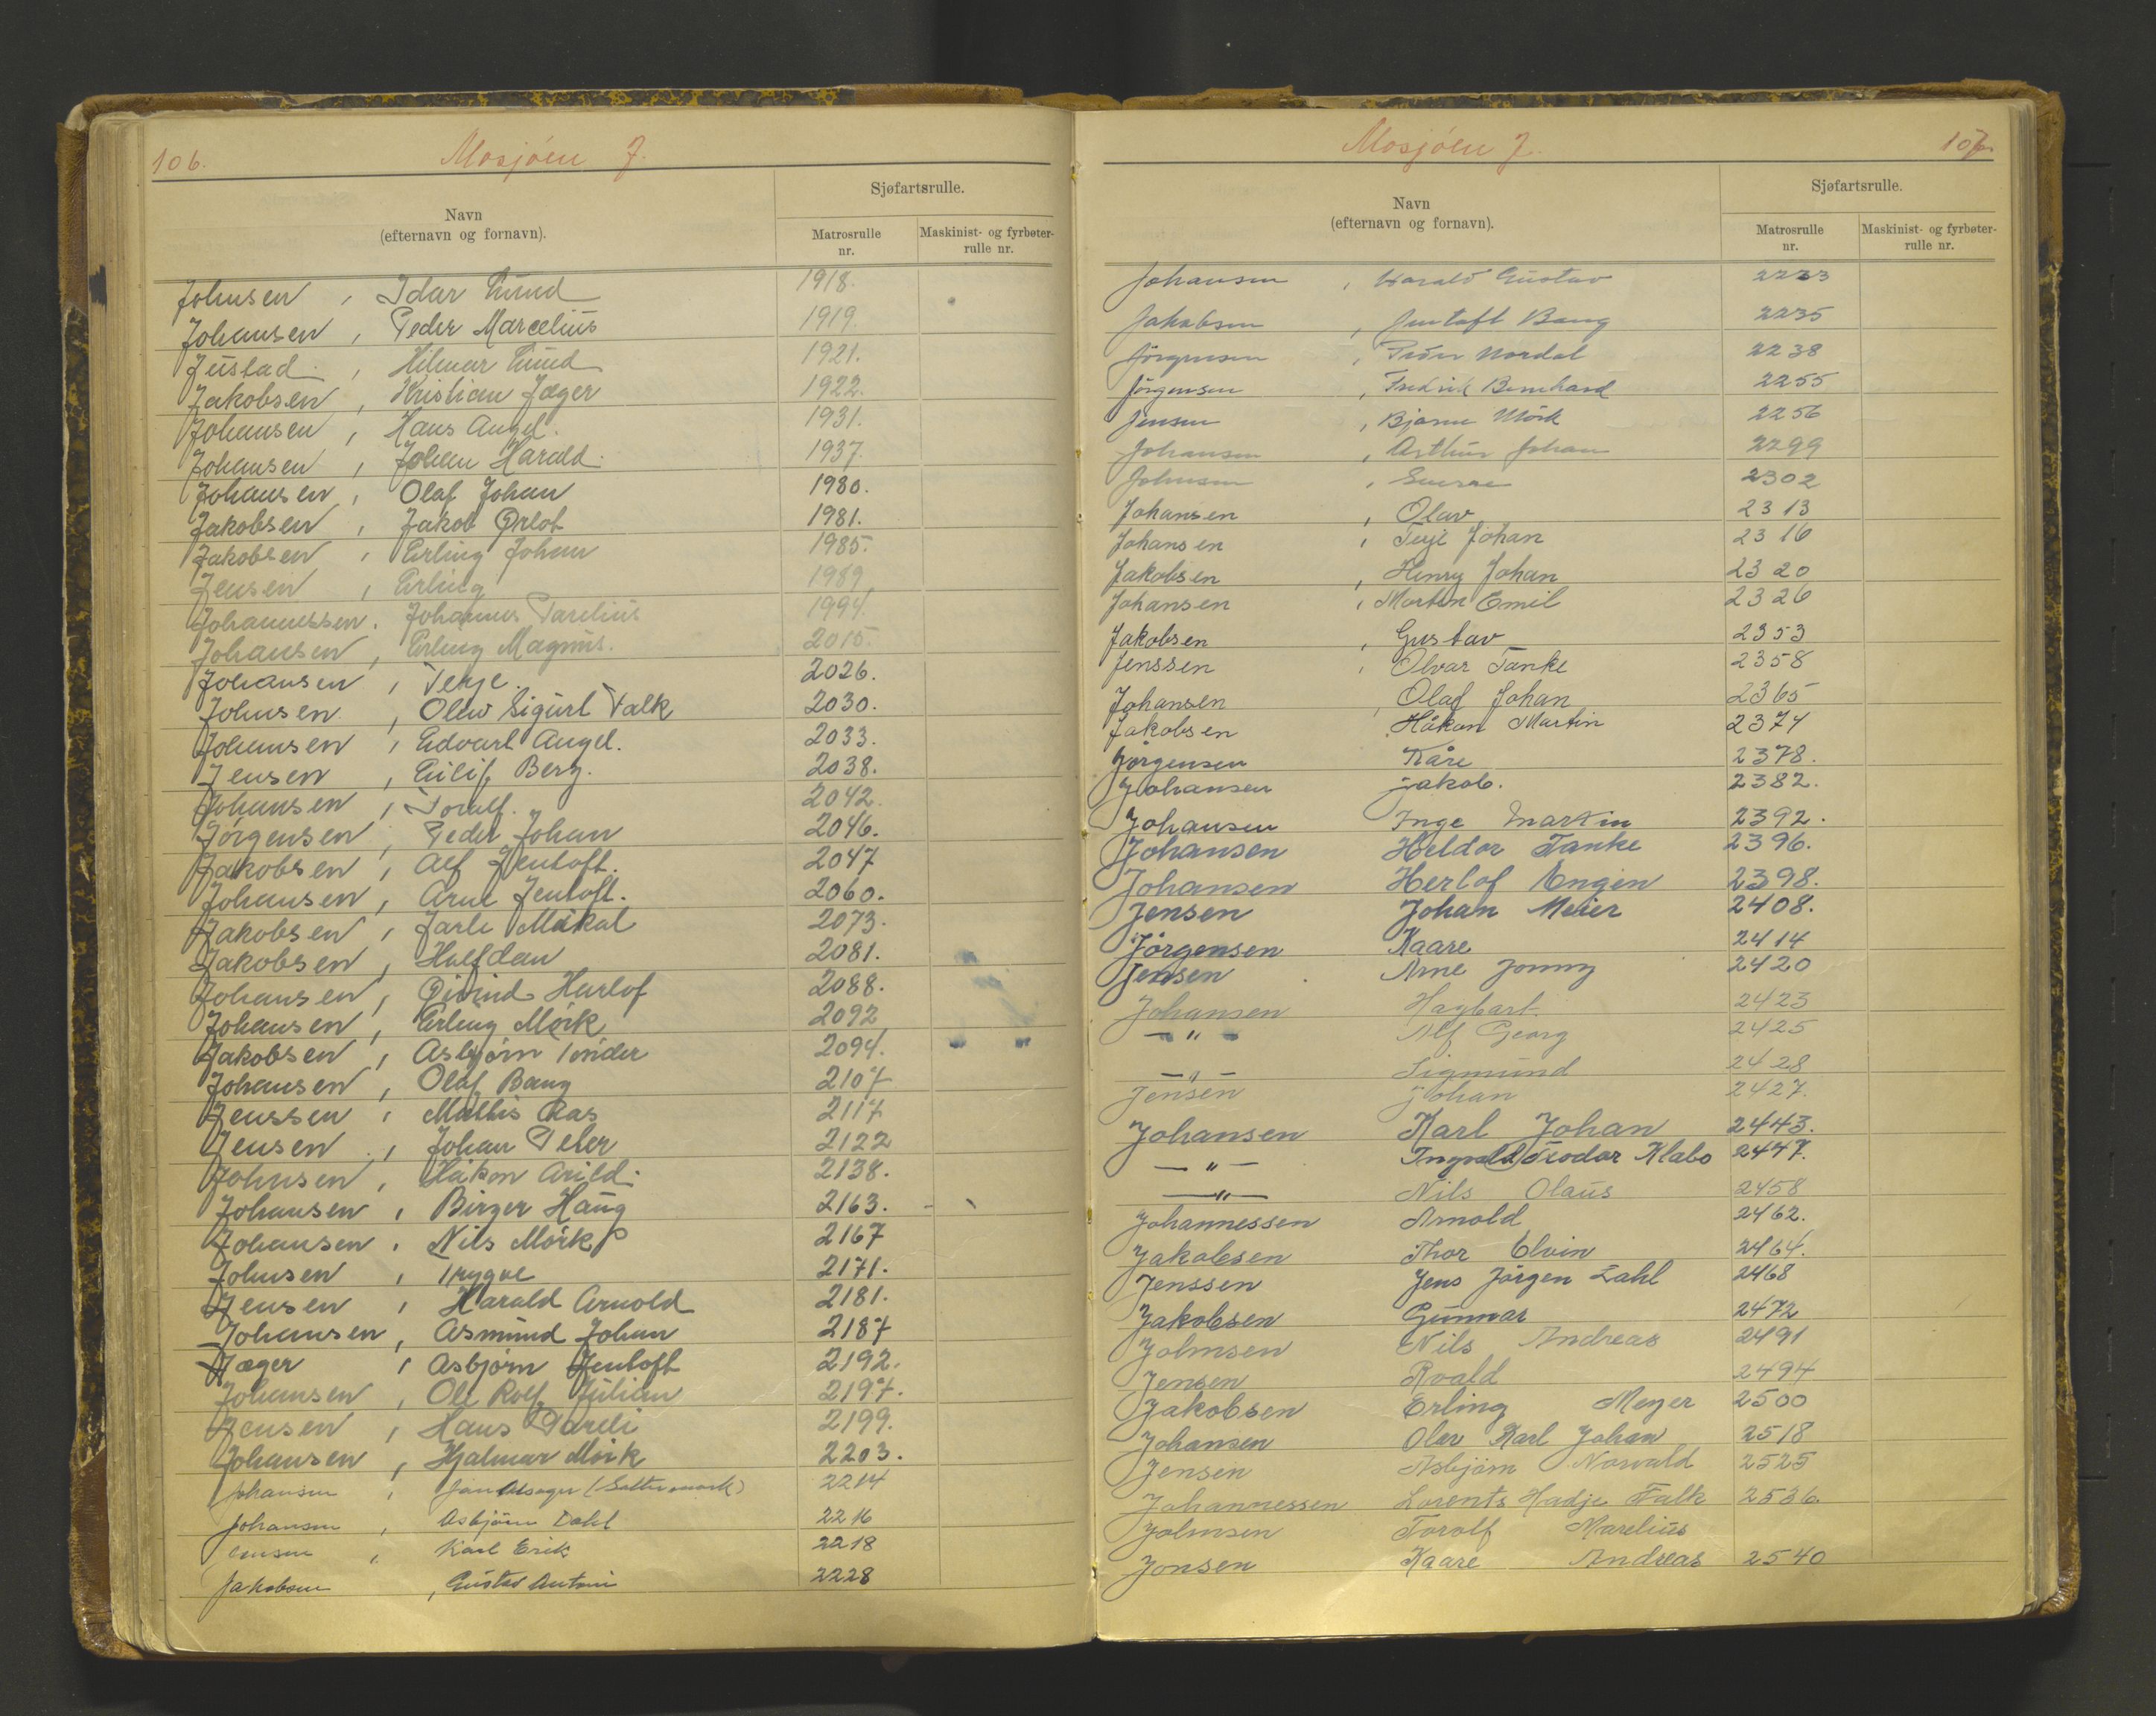 106.
Mosjöen J.
Sjøfartsrulle.
Navn
(efternavn og fornavn).
Matrosrulle
nr.
Maskinist- og fyrbøter-
rulle nr.
Johnsen, Idar Lund 1918.
Johansen, Peder Marcelius 1919.
Justad, Hilmar Lund 1921.
Jakobsen, Kristian Jæger 1922.
Johansen, Hans Angel. 1931.
Johansen, Johan Harald. 1937.
Johansen, Olaf Johan 1980.
Jakobsen, Jakob Ørlob 1981.
Jakobsen, Erling Johan 1985.
Jensen, Erling 1989
Johannessen. Johannes Parelius 1994.
Johansen, Erling Magnus. 2015.
Johansen, Terje. 2026.
Johnsen, Olav Sigurd Falk 2030.
Johansen, Edvart Angel. 2033.
Jensen, Eilif Berg. 2038.
Johansen, Toralf. 2042.
Jörgensen, Peder Johan 2046.
Jakobsen, Alf Jentoft. 2047
Johansen, Arne Jentoft. 2060.
Jakobsen, Jarle Mikal 2073.
Jakobsen, Halfdan 2081.
Johansen, Øivind Harlof 2088.
Johansen, Erling Mörk 2092
Jakobsen, Asbjörn Tönder 2094.
Johansen, Olaf Bang 2107
Jenssen, Mathis Ras 2117
Jensen, Johan Peter 2122
Johnsen, Håkon Arild. 2138.
Johansen, Birger Haug 2163.
Johansen, Nils Mörk 2167
Johnsen, Trygve 2171.
Jensen, Harald Arnold 2181.
Johansen, Asmund Johan 2187
Jæger, Asbjörn Jentoft 2192.
Johansen, Ole Rolf Julian 2197.
Jensen, Hans Pareli 2199.
Johansen, Hjalmar Mörk 2203.
Johansen, Jan 2214
Johansen, Asbjörn Dahl 2216
Jensen, Karl Erik 2218
Jakobsen, Gustav Antoni 2228
107.
Mosjöen J.
Sjøfartsrulle.
Navn
(efternavn og fornavn).
Matrosrulle
nr.
Maskinist- og fyrbøter-
rulle nr.
Johansen, Harald Gustav 2233
Jakobsen, Jentoft Bang 2235
Jörgensen, Nordal 2238
Jörgensen, Fredrik Bernhard 2255
Jensen, Bjarne Mörk 2256
Johansen, Arthur Johan 2299
Johnsen, Sverre 2302
Johansen, Olav 2313
Johansen, Terje Johan 2316
Jakobsen, Henry Johan 2320
Johansen, Morten Emil 2326
Jakobsen, Gustav 2353
Jenssen, Olvar Tanke 2358
Johansen, Olaf Johan 2365
Jakobsen Håkon Martin 2374
Jörgensen Kåre 2378.
Johansen Jakob. 2382.
Johansen Inge Martin 2392.
Johansen Heldor Tanke 2396.
Johansen Herlof Engen 2398.
Jensen Johan Meier 2408.
Jörgensen Kaare 2414
Jensen Arne Jonny 2420
Johansen Hagbart 2423
— " — Alf Georg 2425
— " — Sigmund 2428
Jensen Johan 2427.
Johansen Karl Johan 2443.
— " — Ingvald Teodor Klabo 2447.
— " — Nils Olaus 2458
Johannessen Arnold 2462.
Jakobsen Thor Elvin 2464.
Jenssen Jens Jörgen Zahl 2468
Jakobsen Gunnar 2472
Johnsen Nils Andreas 2491
Jensen Roald 2494
Jakobsen Erling Meyer 2500
Johansen Olav Karl Johan 2518
Jensen Asbjörn Norvald 2525
Johannessen Lorents Hadje Falk 2536.
Johnsen Torolf Marelius
Jonsen Kaare Andreas 2540